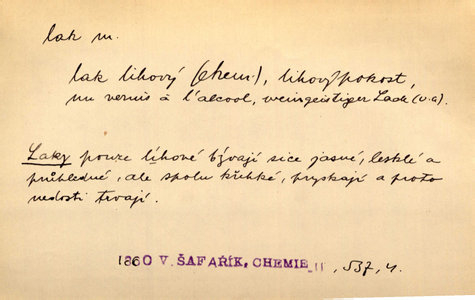 lak m.
lak lihový (chem.), lihový pokost,
un vernis à l'alcool, weingeistiger Lack (u. a).
Laky pouze líhové bývají sice jasné, lesklé a
průhledné, ale spolu křehké, pryskají a proto
nedosti trvají.
1860 V. ŠAFAŘÍK, CHEMIE II, 537, 4.